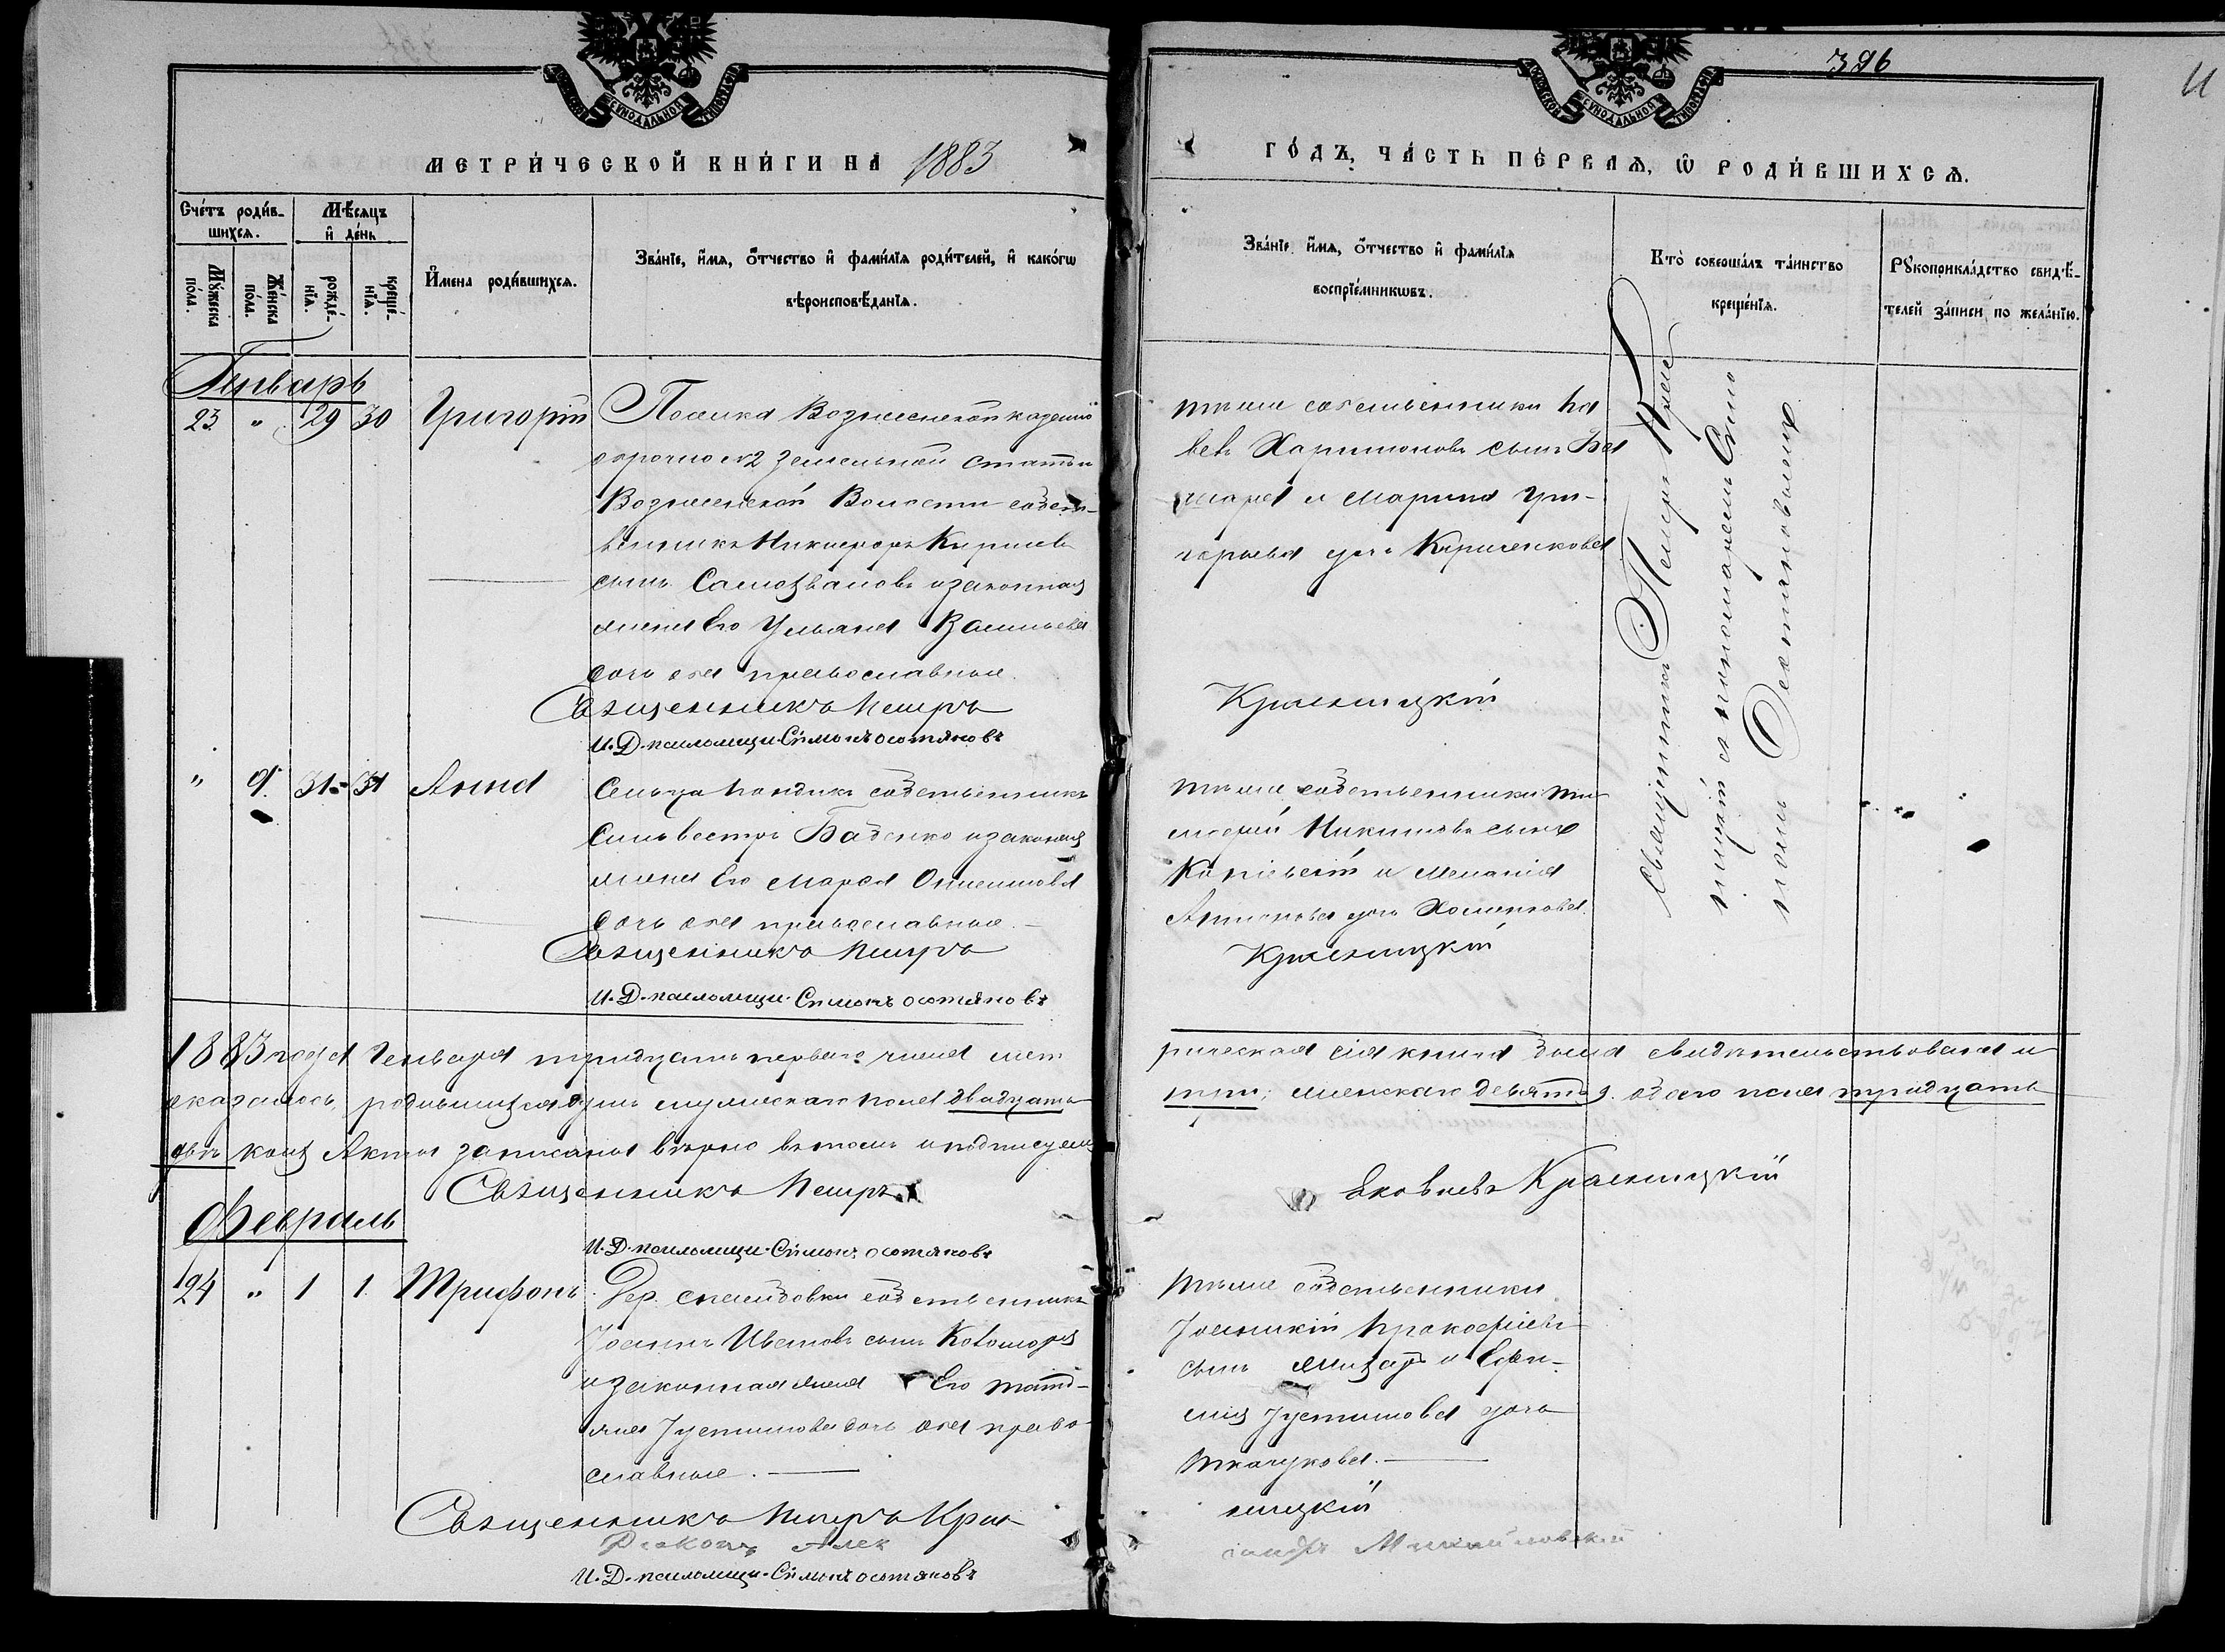 396
МЕТРИ́ЧЕСКОЙ КНИ́ГИ НА 1883
ГО́ДЪ, ЧА́СТЬ ПЕ́РВАѦ, Ѡ РОДИ́ВШИХСѦ.
Сче́тъ роди́в-
шихсѧ.
Мѣ́сѧцъ
и҆ де́нь
Мꙋ́жеска
по́ла.
Же́нска
по́ла.
рожде́-
нїѧ.
креще́-
нїѧ.
И҆мена роди́вшихсѧ.
Зва́нїе, и҆́мѧ, ѻ҆́тчество и҆ фами́лїѧ роди́телей, и҆ како́гѡ
вѣроисповѣ́данїѧ.
Зва́нїе, и҆́мѧ, ѻ҆́тчество и҆ фами́лїѧ
воспрїе́мникѡвъ.
Кто̀ соверша́лъ та́инство
креще́нїѧ.
Рꙋкоприкла́дство свидѣ́-
телей за́писи по жела́нїю.
Генварь
23 " 29 30 Григорій
Вознесенской казенно
оброчно №2 земельной статьи
Вознесенской Волости собст-
венникъ Никифоръ Кирилевъ
сынъ Самозвановъ и законная
жена Его Ульяна Васильева
дочь оба православные.
Священникъ Петръ
И. Д. псаломщи. Сѷмонъ остяновъ
тѣже собственники Па
велъ Харитоновъ сынъ
и Марина Гри-
горьева дочь Кириченкова
Красницкій
Священникъ Петръ Крас
ницкій съ пономаремъ Симо
номъ Остяновымъ
" 9. 31 31 Анна
Сельца собственникъ
Сильвестръ Баденко и законная
жена Его Марѳа
дочь оба православные.
Священникъ Петръ
И. Д. псаломщи. Сѷмонъ остяновъ
тѣже собственники Ти
моѳей Никитовъ сынъ
и Меланія
Антонова дочь Хоменкова.
Красницкій
1883 года Генваря тридцать перваго числа мет
рическая сія книга была свидѣтельствована и
оказалось, родившихся душъ мужскаго пола двадцать
три; женскаго девять 9. обоего пола тридцать
двѣ коихъ Акты записаны вѣрно въ томъ и подписуемъ
Священникъ Петръ
Яковлевъ Красницкій
И. Д. псаломщи. Сѷмонъ остяновъ
Февраль
24 " 1 1 Трифонъ
Дер. собственникъ
Іоаннъ Ивановъ сынъ
и законная жена Его Татія-
на Іустинова дочь оба право
славные.
Священникъ Петръ Крас
Діаконъ Алек
И. Д. псаломщи. Сѷмонъ остяновъ
Тѣже собственники
Іоанникій Прокофіевъ
сынъ и Ефи-
мія Іустинова дочь
Ткачукова.
ницкій
сандръ Михайловскій